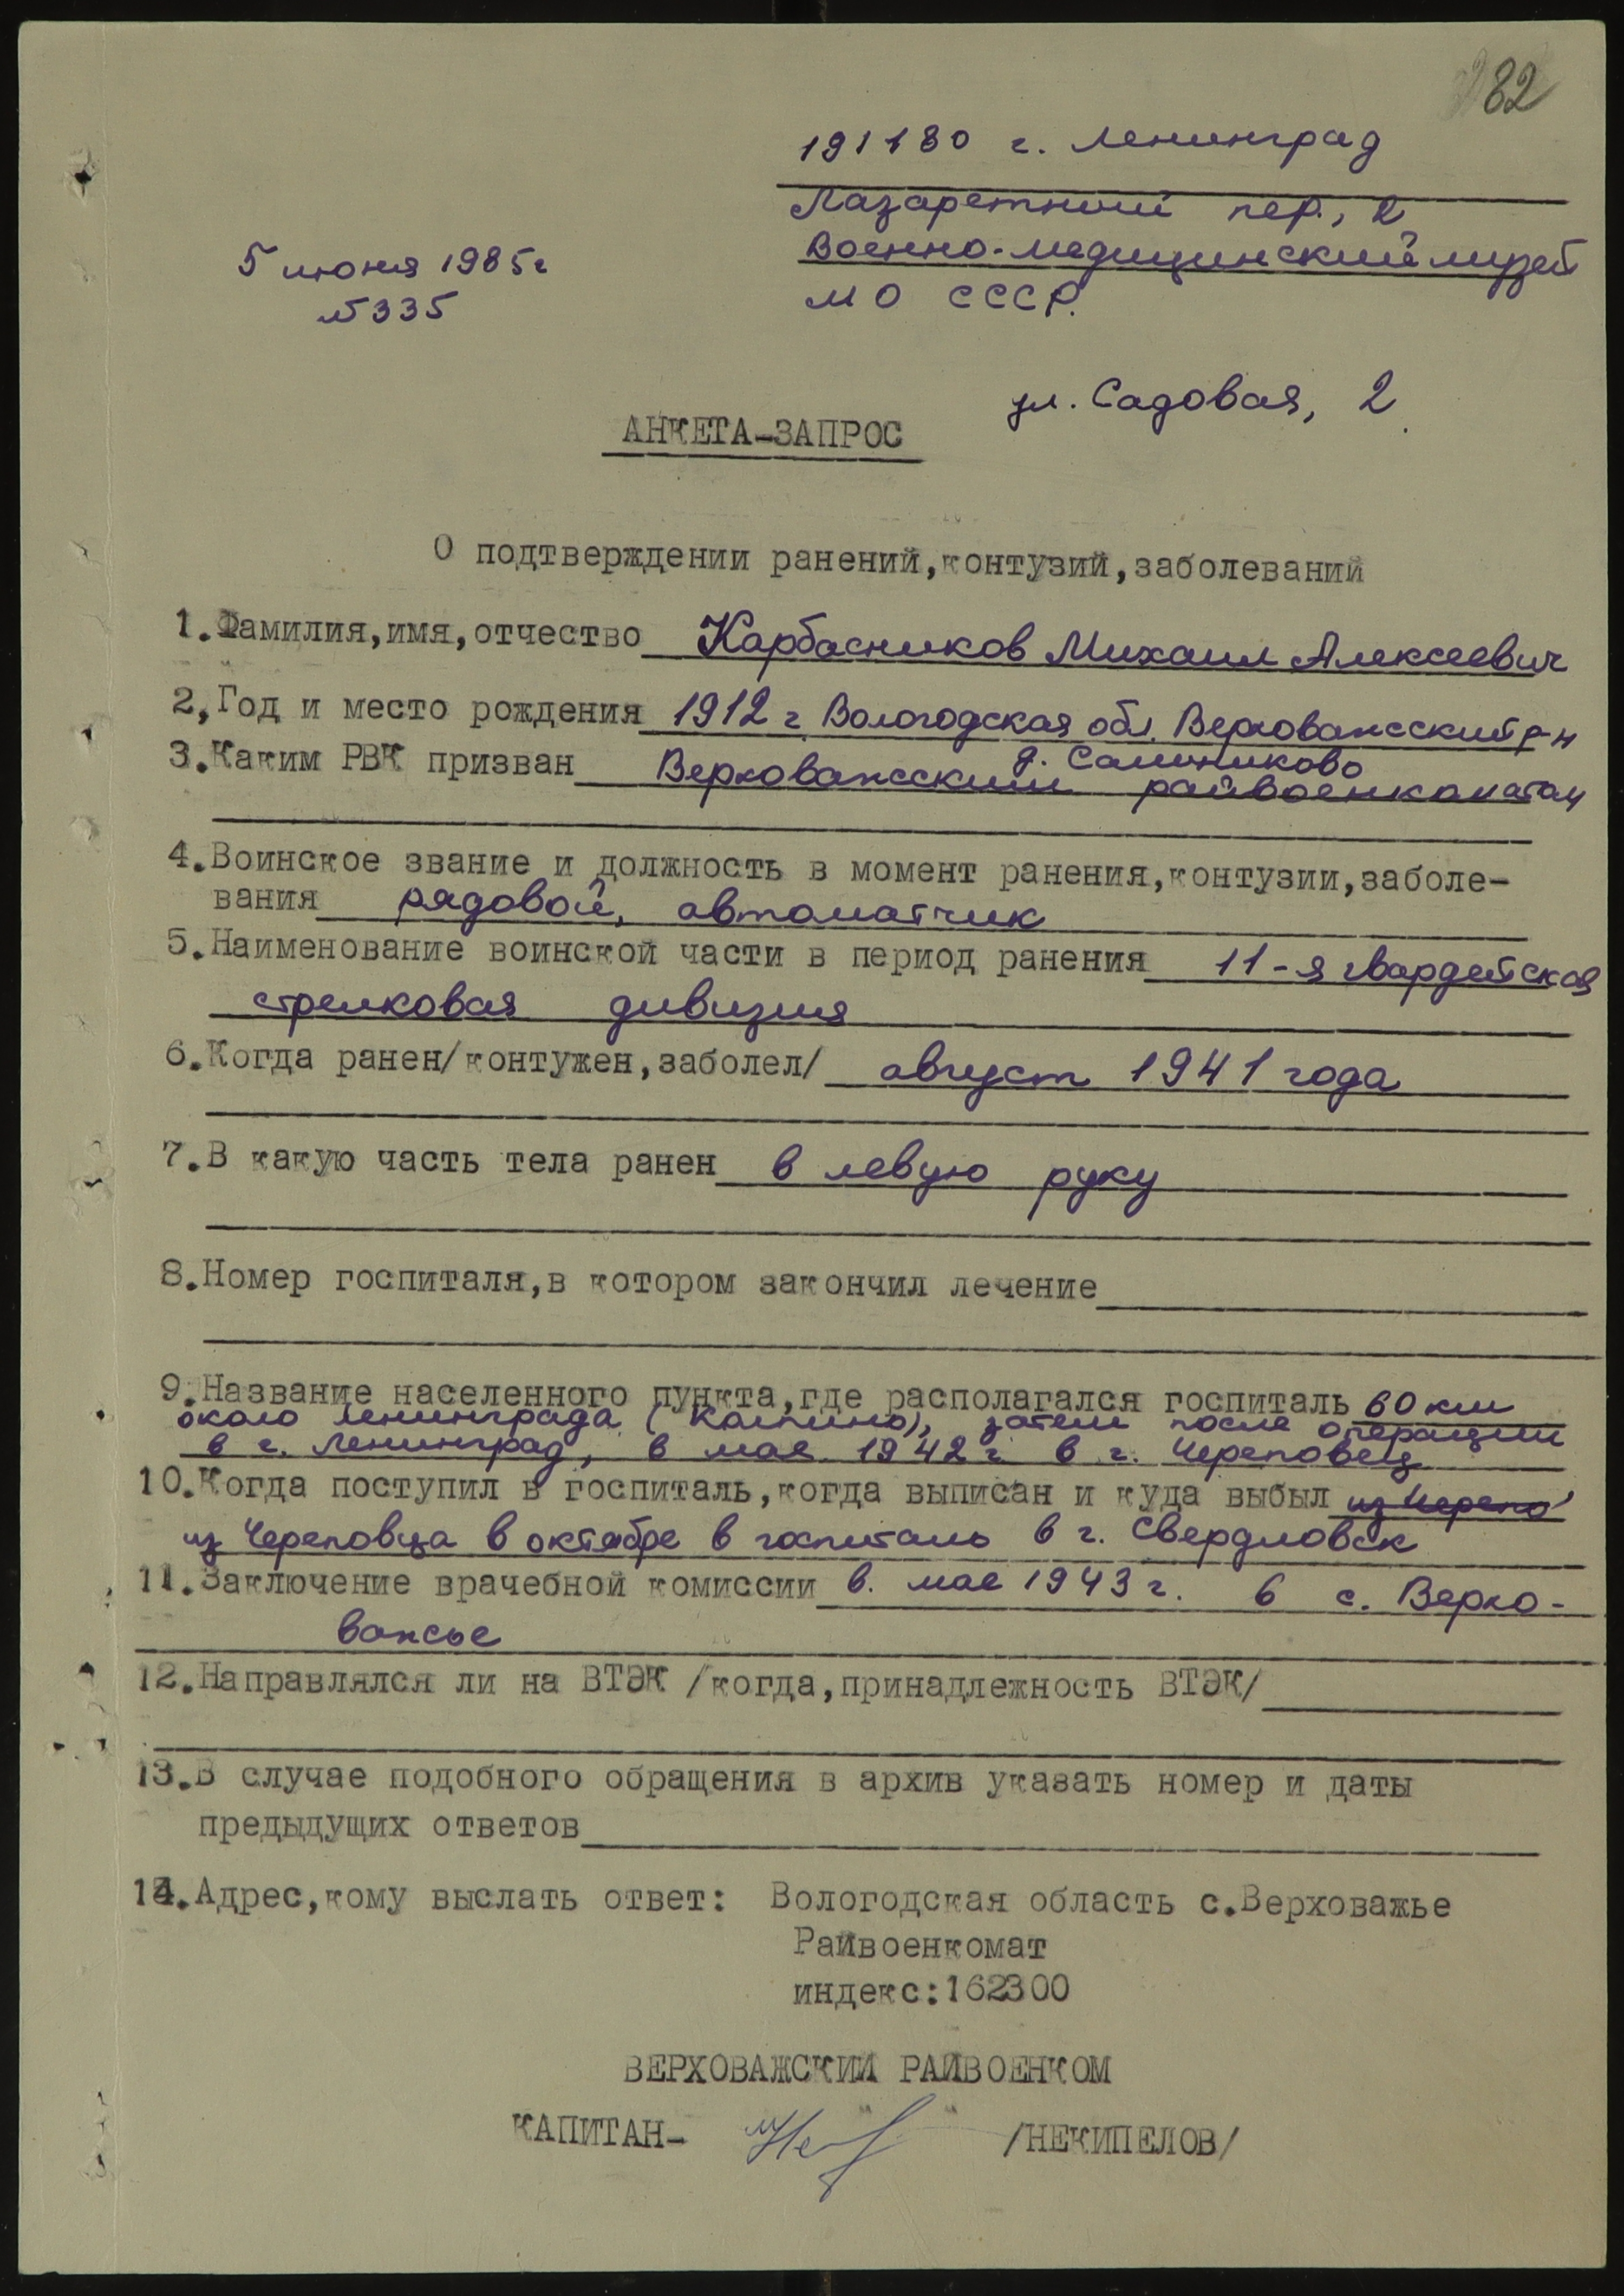 282
191180 г. Ленинград
Лазаретный пер., 2
Военно-медицинский музей
МО СССР.
5 июня 1985г
№335
ул. Садовая, 2
АНКЕТА-ЗАПРОС
О подтверждении ранений,контузий,заболеваний
1.Фамилия,имя,отчество Карбасников Михаил Алексеевич
2,Год и место рождения 1912 г. Вологодская обл. Верховажсский р-н
д. Сметниково
3.Каким РВК призван Верховажсским райвоенкоматом
4.Воинское звание и должность в момент ранения,контузии,заболе-
вания рядовой, автоматчик
5.Наименование воинской части в период ранения 11-я гвардейская
стрелковая дивизия
6.Когда ранен/контужен,заболел/ август 1941 года
7.В какую часть тела ранен в левую руку
8.Номер госпиталя,в котором закончил лечение
9.Название населенного пункта,где располагался госпиталь 60 км
около Ленинграда (Колпино), затем после операции
в г. Ленинград, в мае 1942 г в г. Череповец
10.Когда поступил в госпиталь,когда выписан и куда выбыл из Черепо
из Череповца в октябре в госпиталь в г. Свердловск
11.Заключение врачебной комиссии в. мае 1943 г. в с. Верхо-
важсье
12.Направлялся ли на ВТЭК /когда,принадлежность ВТЭК/
13.В случае подобного обращения в архив указать номер и даты
предыдущих ответов
14.Адрес,кому выслать ответ: Вологодская область с.Верховажье
Райвоенкомат
индекс:162300
ВЕРХОВАЖСКИЙ РАЙВОЕНКОМ
КАПИТАН- /НЕКИПЕЛОВ/